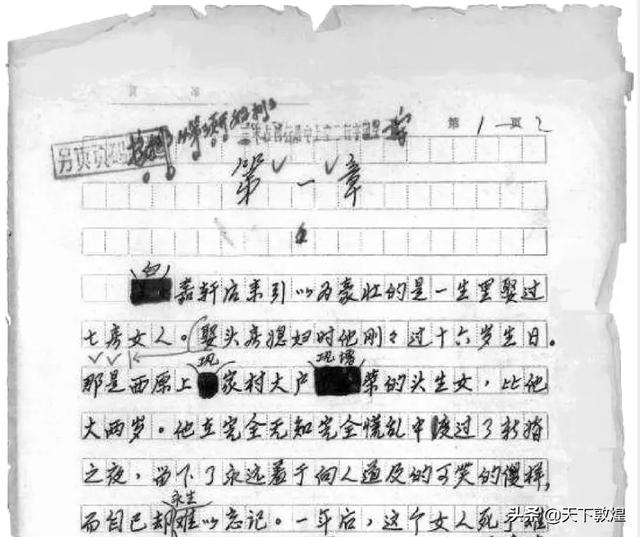 第1页
另页
第一章
白
嘉轩后来引以为豪壮的是一生里娶过
七房女人。娶头房媳妇时他刚刚过十六岁生日。
巩 巩增
那是西原上家村大户荣的头生女，比他
大两岁。他在完全无知完全慌乱中渡过了新婚
之夜，留下了永远羞于向人道及的可笑的傻样，
永生
而自己却难以忘记。一年后，这个女人死于难
头条@天下敦煌